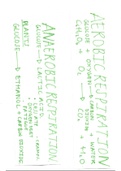 AEROBIC REPIRATION!
GLUCOSE + OXYGEN → CARBON + WATER
C₆H₁₂O₆ + O₂ → CO₂ + H₂O
ANAEROBIC REPIRATION
GLUCOSE → LACTIC ACID
PLANTS!
GLUCOSE → ETHANOL + CARBON DIOXIDE